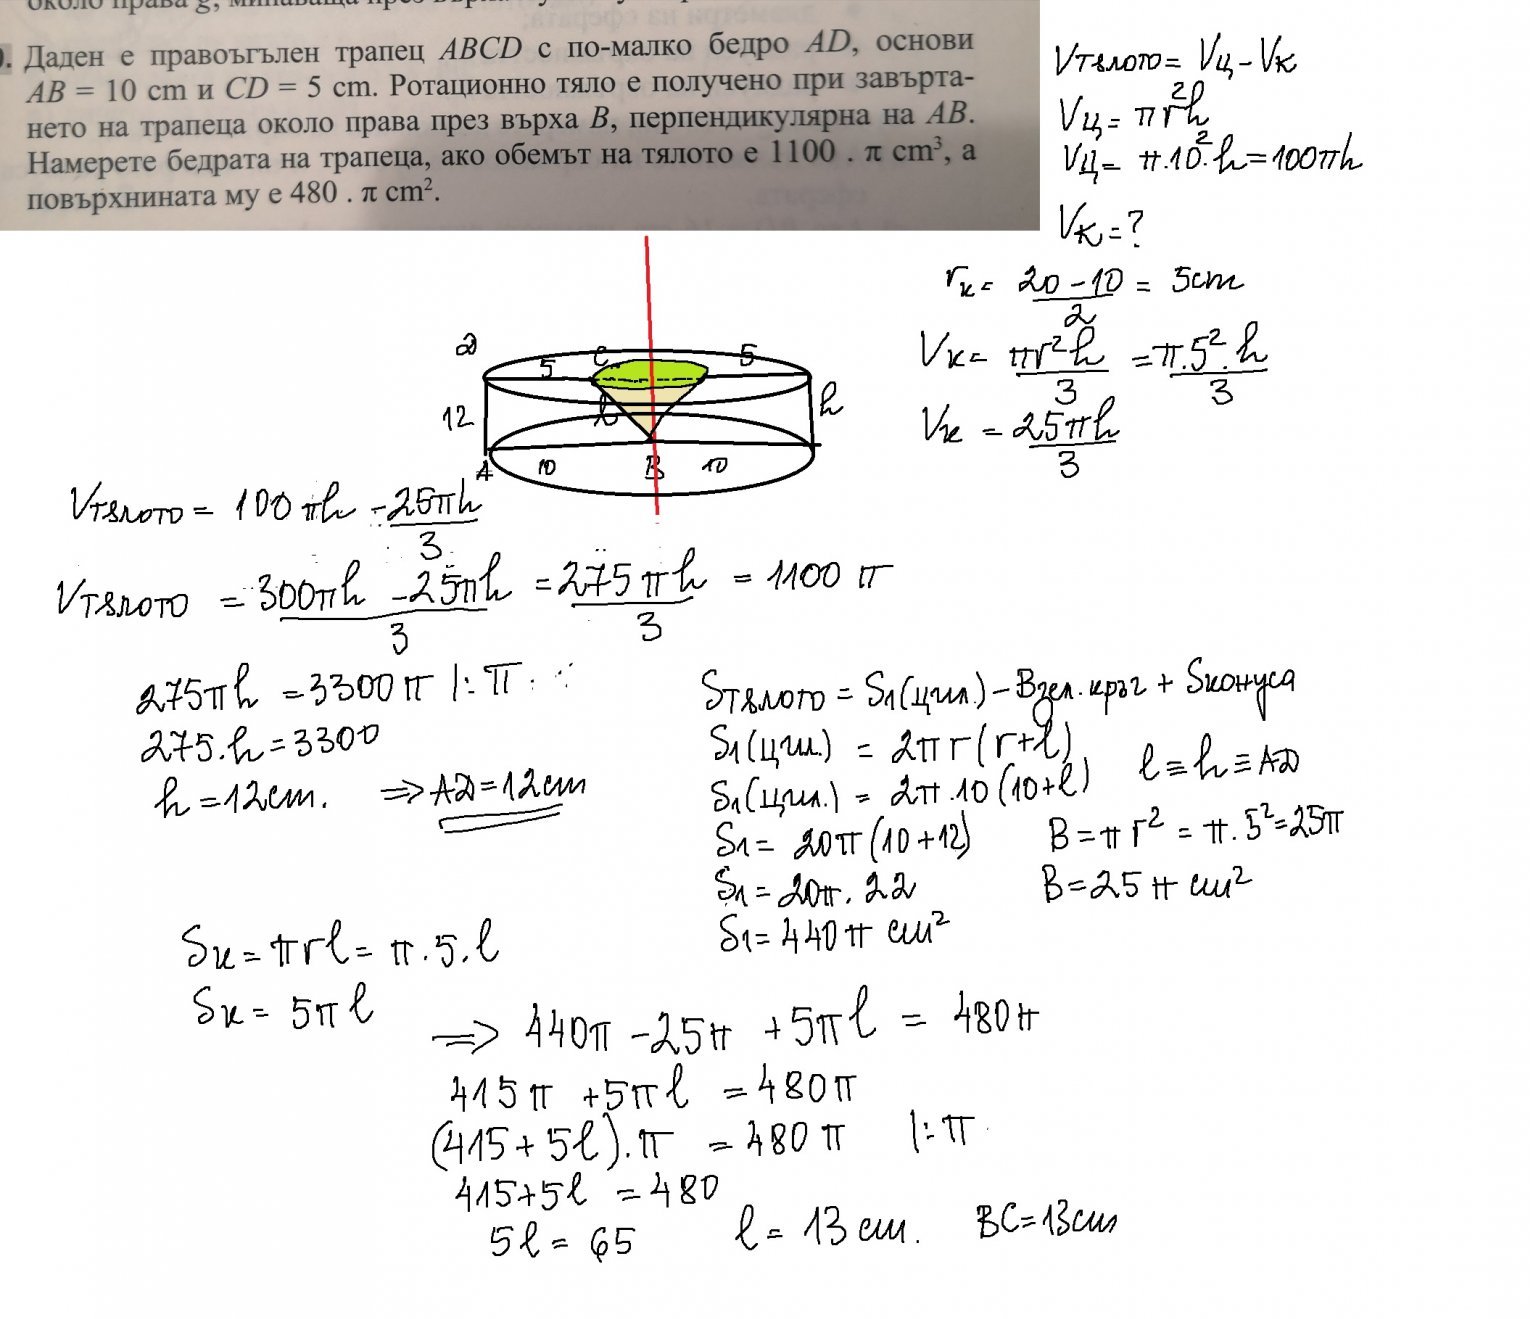 около права g,
). Даден е правоъгълен трапец ABCD с по-малко бедро AD, основи
AB = 10 cm и CD = 5 cm. Ротационно тяло е получено при завърта-
нето на трапеца около права през върха B, перпендикулярна на AB.
Намерете бедрата на трапеца, ако обемът на тялото е 1100 . π cm³, а
повърхнината му е 480 . π cm².
Vтялото = Vц - Vк
Vц = πr²h
Vц = π.10².h = 100πh
Vк = ?
rк = 20 - 10 / 2 = 5cm
Vк = πr²h / 3 = π.5².h / 3
Vк = 25πh / 3
D 5 C 5
12 l h
A 10 B 10
Vтялото = 100πh - 25πh / 3
Vтялото = 300πh - 25πh / 3 = 275πh / 3 = 1100π
275πh = 3300π |:π
275.h = 3300
h = 12cm. => AD = 12cm
Sтялото = S1(цил.) - Bзел.кръг + Sконуса
S1(цил.) = 2πr(r+l)
S1(цил.) = 2π.10(10+l) l ≡ h ≡ AD
S1 = 20π(10+12) B = πr² = π.5² = 25π
S1 = 20π.22 B = 25π cm²
S1 = 440π cm²
Sк = πrl = π.5.l
Sк = 5πl
=> 440π - 25π + 5πl = 480π
415π + 5πl = 480π
(415 + 5l).π = 480π |:π
415+5l = 480
5l = 65 l = 13 cm. BC = 13cm